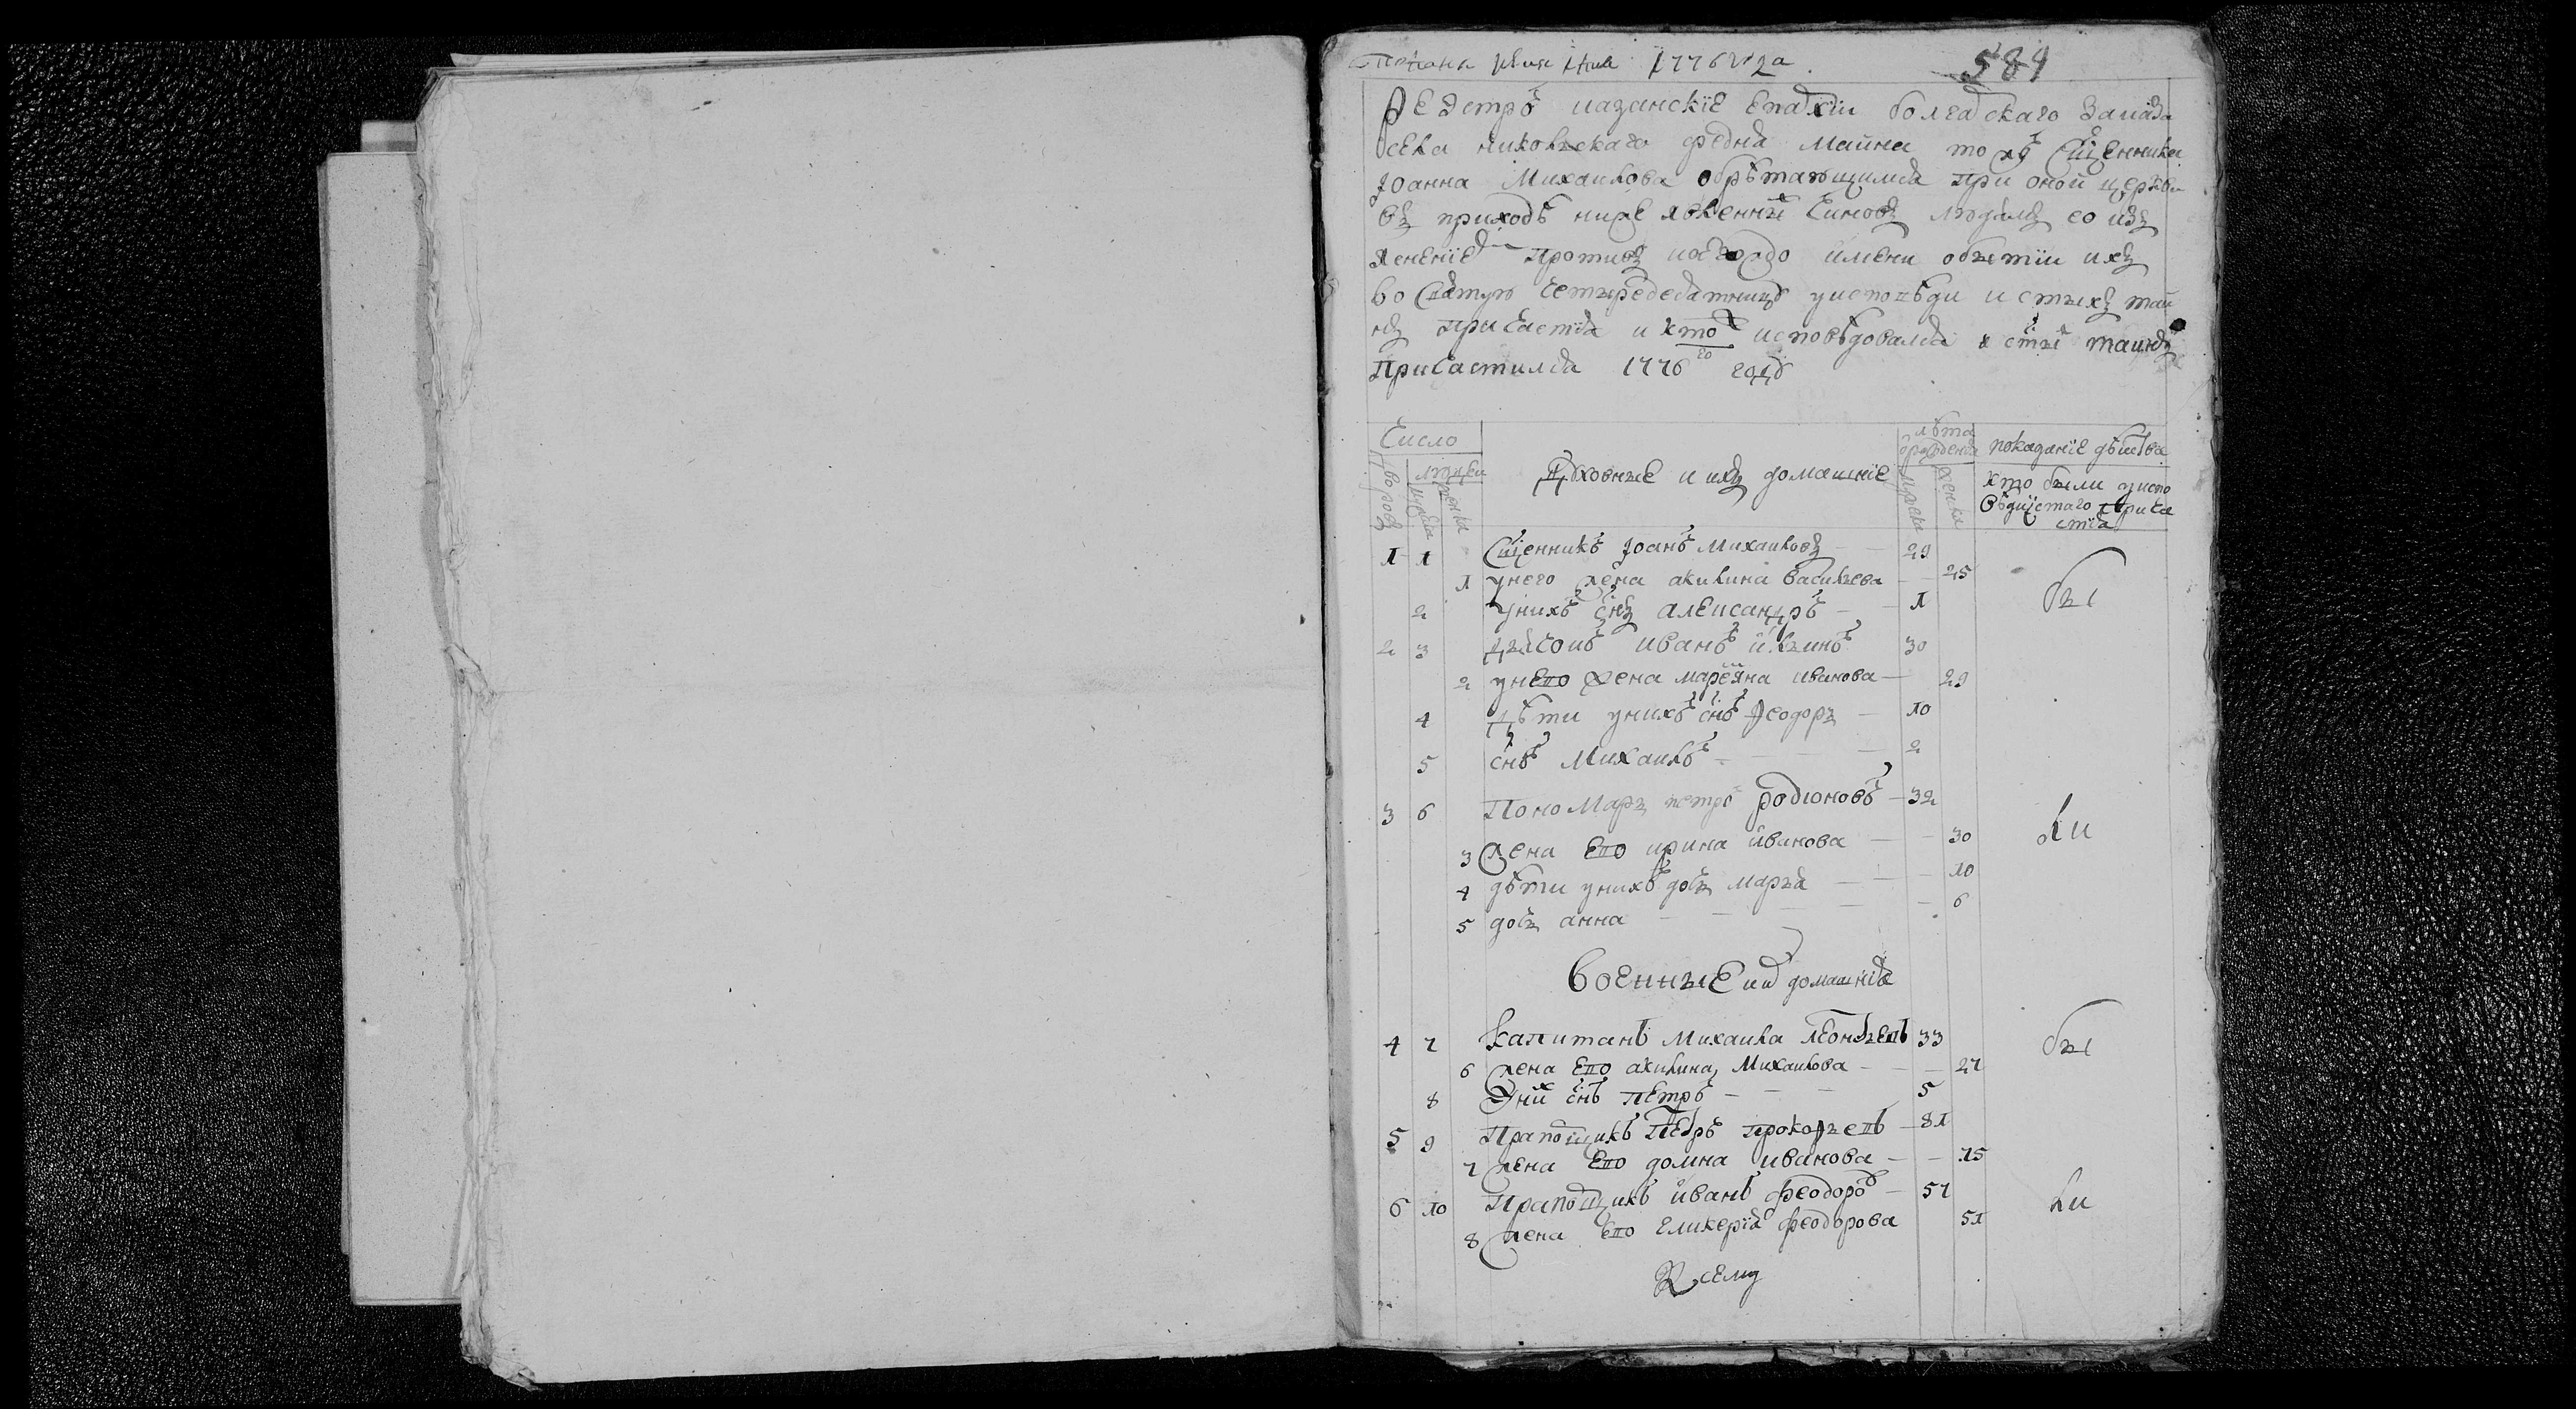 1776 года
584
Реэстръ казанскїе епархїи болгарскаго заказа
села никольскаго майна тожъ Сщенника
Iоанна Михаилова обрѣтающимся при оной церкви
въ приходѣ нижеявленныхъ чиновъ людямъ со изъ
явленїемъ противъ коегождо имени о бытїи ихъ
во Святую четыредесятницу у исповѣди и стыхъ таи
нъ причастїя и кто исповѣдовался и стыхъ таинъ
причастился 1776 го году
Число
дворовъ
людей
мужеска
женска
Духовные и ихъ домашнїе
лѣта от рожденїя
мужеска
женска
показанїе дѣйства
кто были у испо
вѣди и стаго прича
стїя
1 1 Сщенникъ Iоаннъ Михаиловъ 29
1 у него жена акилина васильева 25
2 у нихъ снъ александръ 1
бы
2 3 дьячокъ иванъ 30
2 у него жена марїяна иванова 29
4 дѣти у нихъ снъ феодоръ 10
5 снъ Михаилъ 2
3 6 Пономарь петръ родїоновъ 32
3 жена его ирина иванова 30
ли
4 дѣти у нихъ дочь марья 10
5 дочь анна 6
Военные и их домашнїя
4 7 Капитанъ Михаила леонтьевъ 33
бы
6 жена его акилина Михаилова 27
8 У них снъ петръ 5
5 9 Прапорщикъ Петръ прокофьевъ 81
7 жена его домна иванова 75
6 10 Прапорщикъ иванъ феодоров 57
ли
8 жена его гликерїя феодорова 51
К сему